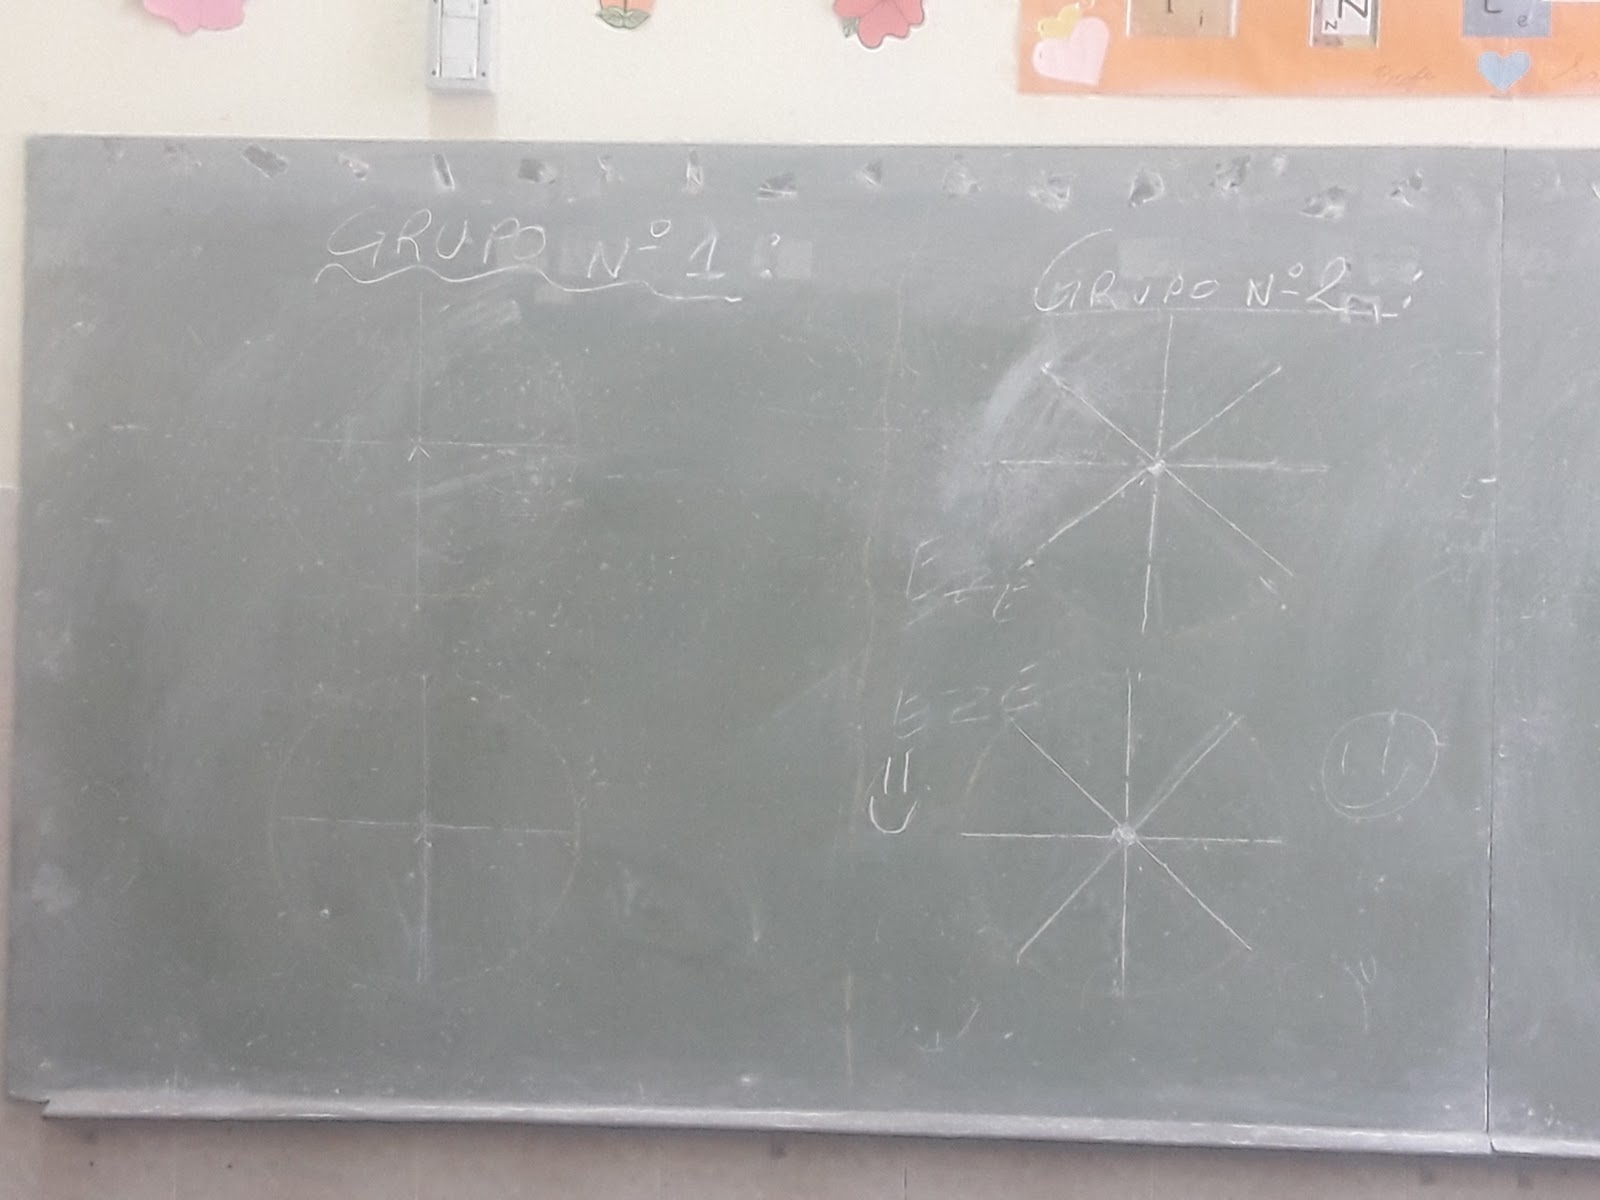 GRUPO Nº 1:
GRUPO Nº 2:
EZE
EZE